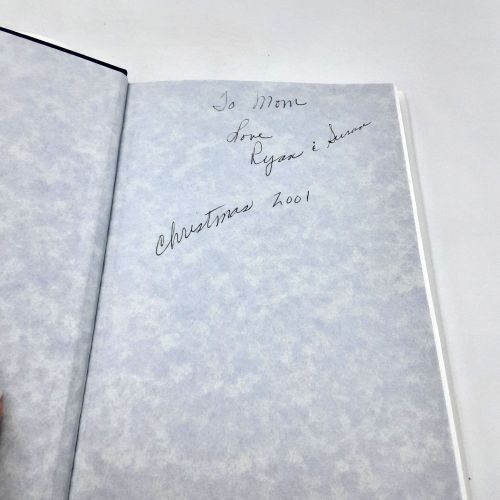 To Mom
Love
Ryan & Susan
Christmas 2001